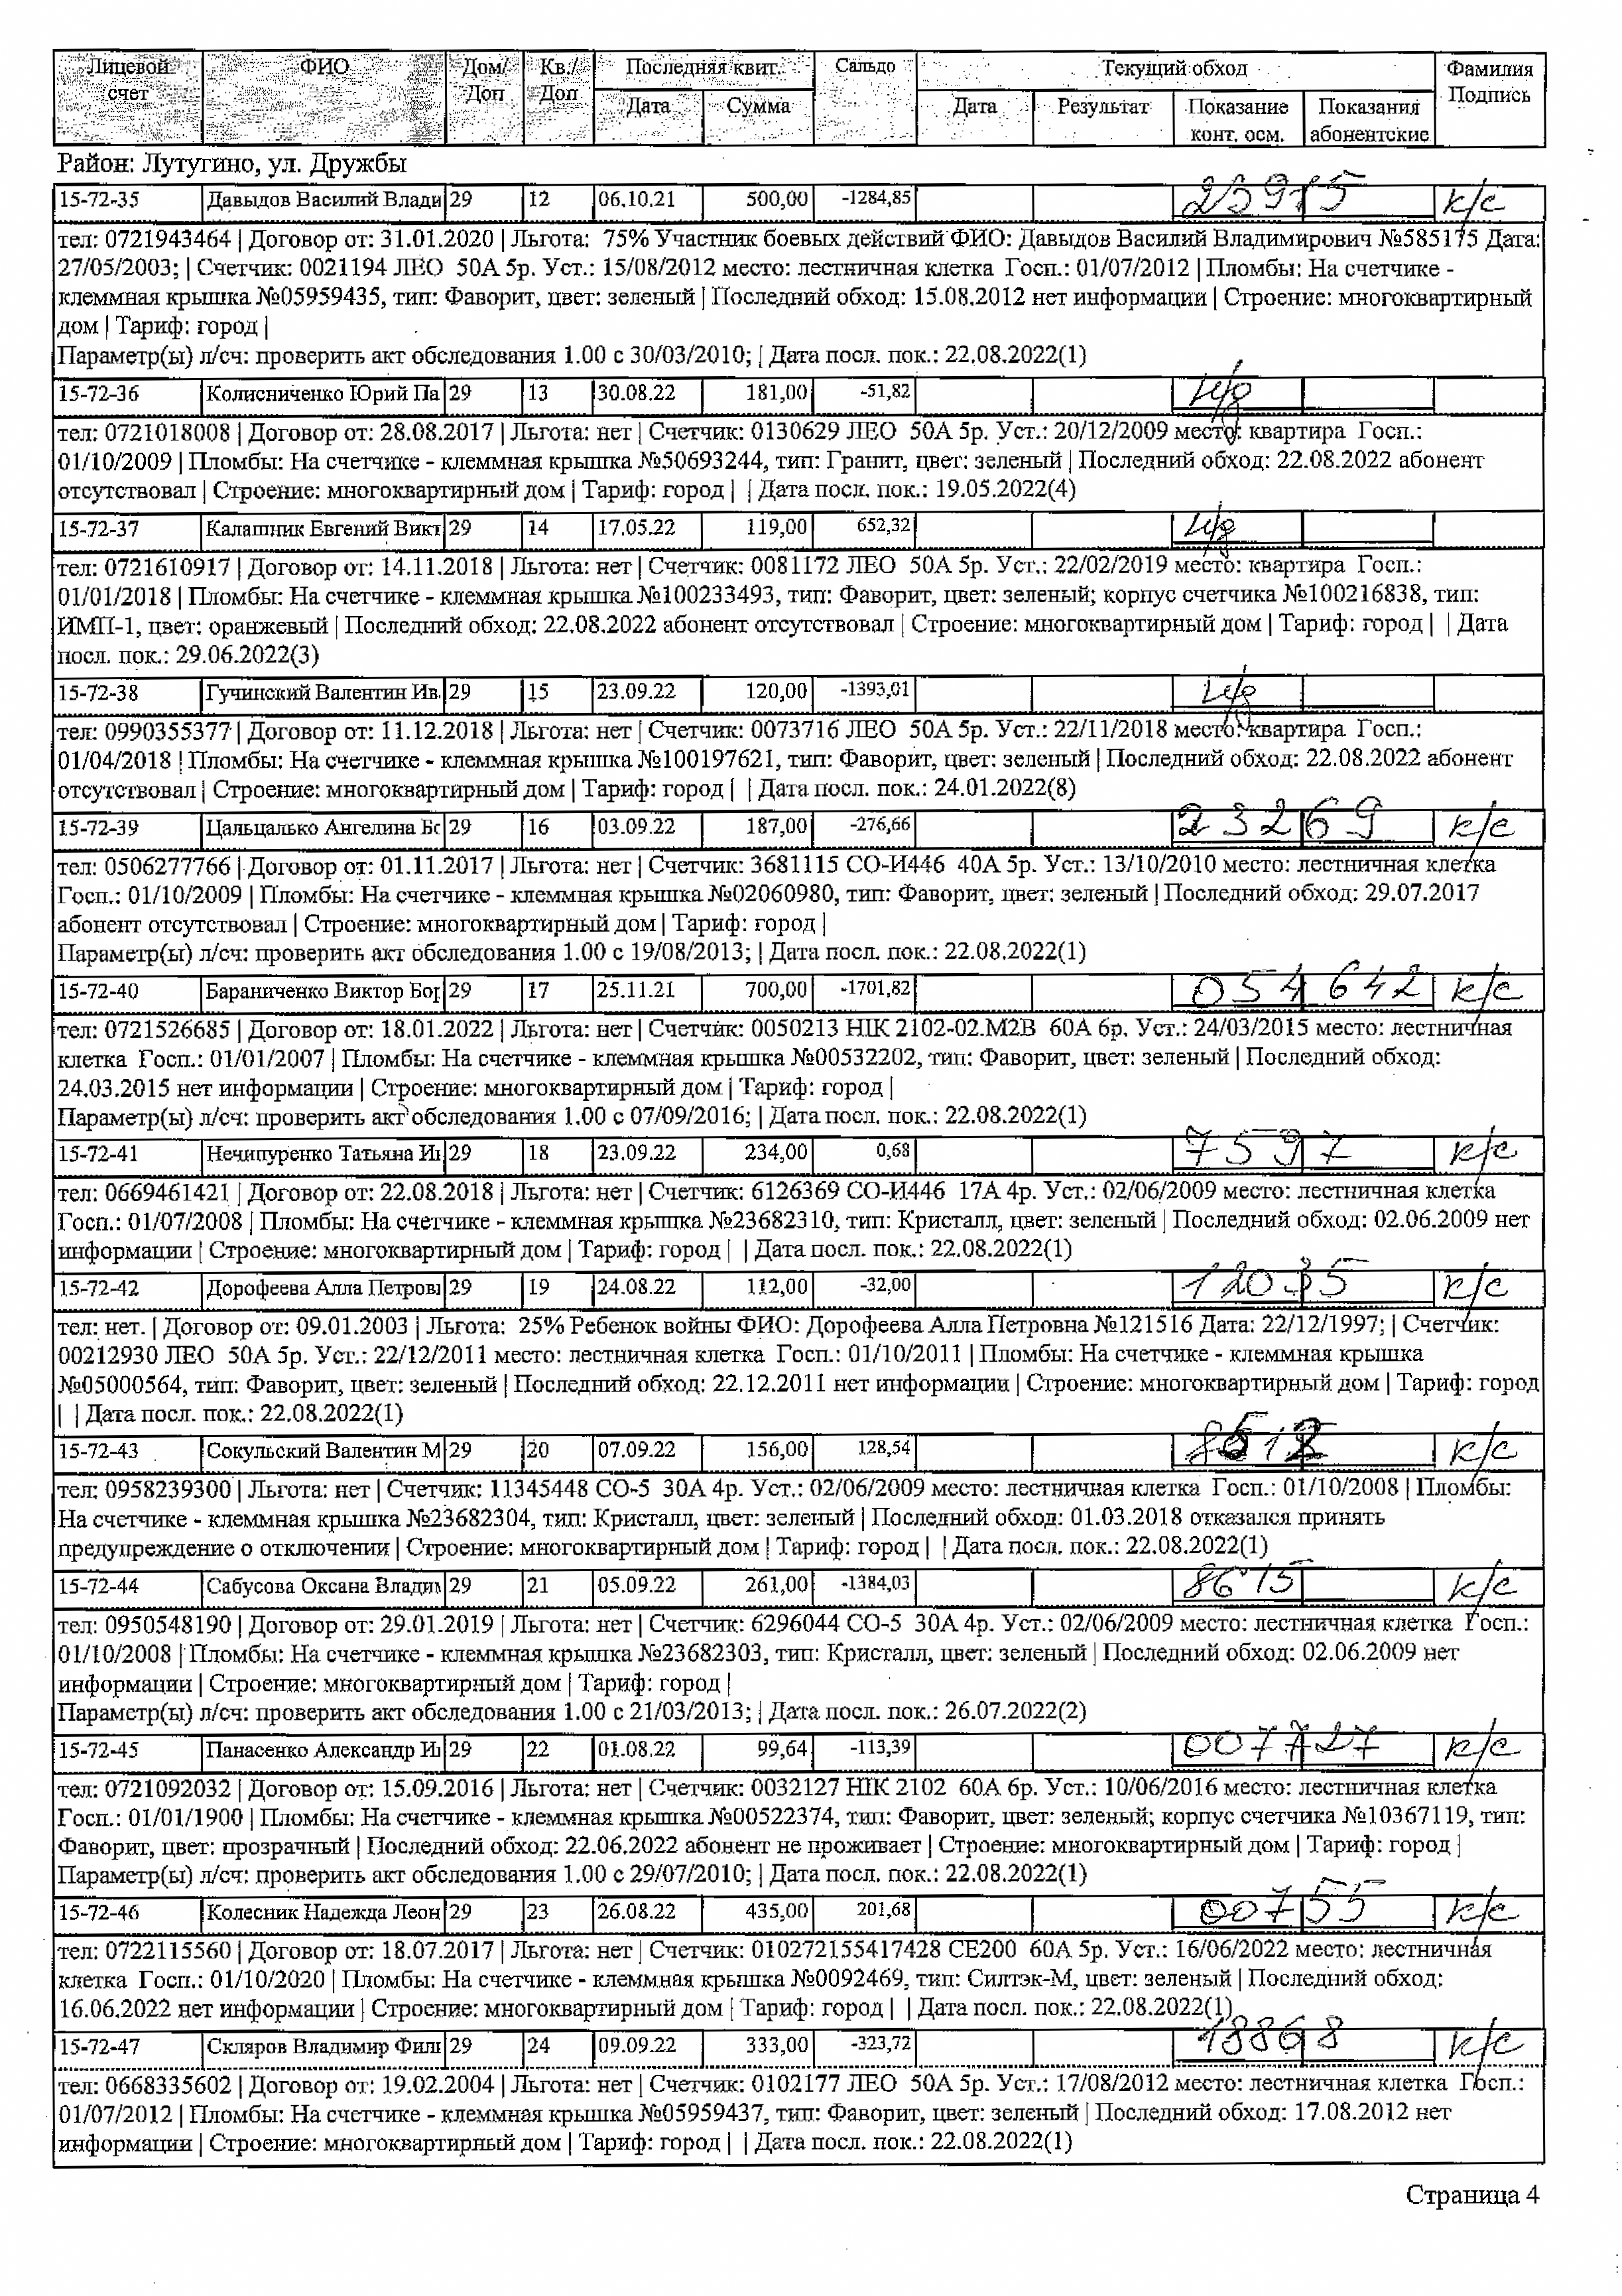 Лицевой счет ФИО Дом/Доп Кв./Доп Последняя квит. Сальдо Текущий обход Фамилия Подпись
Дата Сумма Дата Результат Показание конт. осм. Показания абонентские
Район: Лутугино, ул. Дружбы
15-72-35 Давыдов Василий Влади 29 12 06.10.21 500,00 -1284,85 23975 к/с
тел: 0721943464 | Договор от: 31.01.2020 | Льгота: 75% Участник боевых действий ФИО: Давыдов Василий Владимирович №585175 Дата:
27/05/2003; | Счетчик: 0021194 ЛЕО 50А 5р. Уст.: 15/08/2012 место: лестничная клетка Госп.: 01/07/2012 | Пломбы: На счетчике -
клеммная крышка №05959435, тип: Фаворит, цвет: зеленый | Последний обход: 15.08.2012 нет информации | Строение: многоквартирный
дом | Тариф: город |
Параметр(ы) л/сч: проверить акт обследования 1.00 с 30/03/2010; | Дата посл. пок.: 22.08.2022(1)
15-72-36 Колисниченко Юрий Па 29 13 30.08.22 181,00 -51,82 н/д
тел: 0721018008 | Договор от: 28.08.2017 | Льгота: нет | Счетчик: 0130629 ЛЕО 50А 5р. Уст.: 20/12/2009 место: квартира Госп.:
01/10/2009 | Пломбы: На счетчике - клеммная крышка №50693244, тип: Гранит, цвет: зеленый | Последний обход: 22.08.2022 абонент
отсутствовал | Строение: многоквартирный дом | Тариф: город | | Дата посл. пок.: 19.05.2022(4)
15-72-37 Калашник Евгений Викт 29 14 17.05.22 119,00 652,32 н/д
тел: 0721610917 | Договор от: 14.11.2018 | Льгота: нет | Счетчик: 0081172 ЛЕО 50А 5р. Уст.: 22/02/2019 место: квартира Госп.:
01/01/2018 | Пломбы: На счетчике - клеммная крышка №100233493, тип: Фаворит, цвет: зеленый; корпус счетчика №100216838, тип:
ИМП-1, цвет: оранжевый | Последний обход: 22.08.2022 абонент отсутствовал | Строение: многоквартирный дом | Тариф: город | | Дата
посл. пок.: 29.06.2022(3)
15-72-38 Гучинский Валентин Ив. 29 15 23.09.22 120,00 -1393,01 н/д
тел: 0990355377 | Договор от: 11.12.2018 | Льгота: нет | Счетчик: 0073716 ЛЕО 50А 5р. Уст.: 22/11/2018 место: квартира Госп.:
01/04/2018 | Пломбы: На счетчике - клеммная крышка №100197621, тип: Фаворит, цвет: зеленый | Последний обход: 22.08.2022 абонент
отсутствовал | Строение: многоквартирный дом | Тариф: город | | Дата посл. пок.: 24.01.2022(8)
15-72-39 Цальцалько Ангелина Бо 29 16 03.09.22 187,00 -276,66 23269 к/с
тел: 0506277766 | Договор от: 01.11.2017 | Льгота: нет | Счетчик: 3681115 СО-И446 40А 5р. Уст.: 13/10/2010 место: лестничная клетка
Госп.: 01/10/2009 | Пломбы: На счетчике - клеммная крышка №02060980, тип: Фаворит, цвет: зеленый | Последний обход: 29.07.2017
абонент отсутствовал | Строение: многоквартирный дом | Тариф: город |
Параметр(ы) л/сч: проверить акт обследования 1.00 с 19/08/2013; | Дата посл. пок.: 22.08.2022(1)
15-72-40 Бараниченко Виктор Бор 29 17 25.11.21 700,00 -1701,82 054642 к/с
тел: 0721526685 | Договор от: 18.01.2022 | Льгота: нет | Счетчик: 0050213 НІК 2102-02.М2В 60А 6р. Уст.: 24/03/2015 место: лестничная
клетка Госп.: 01/01/2007 | Пломбы: На счетчике - клеммная крышка №00532202, тип: Фаворит, цвет: зеленый | Последний обход:
24.03.2015 нет информации | Строение: многоквартирный дом | Тариф: город |
Параметр(ы) л/сч: проверить акт обследования 1.00 с 07/09/2016; | Дата посл. пок.: 22.08.2022(1)
15-72-41 Нечипуренко Татьяна Ин 29 18 23.09.22 234,00 0,68 7597 к/с
тел: 0669461421 | Договор от: 22.08.2018 | Льгота: нет | Счетчик: 6126369 СО-И446 17А 4р. Уст.: 02/06/2009 место: лестничная клетка
Госп.: 01/07/2008 | Пломбы: На счетчике - клеммная крышка №23682310, тип: Кристалл, цвет: зеленый | Последний обход: 02.06.2009 нет
информации | Строение: многоквартирный дом | Тариф: город | | Дата посл. пок.: 22.08.2022(1)
15-72-42 Дорофеева Алла Петровн 29 19 24.08.22 112,00 -32,00 12035 к/с
тел: нет. | Договор от: 09.01.2003 | Льгота: 25% Ребенок войны ФИО: Дорофеева Алла Петровна №121516 Дата: 22/12/1997; | Счетчик:
00212930 ЛЕО 50А 5р. Уст.: 22/12/2011 место: лестничная клетка Госп.: 01/10/2011 | Пломбы: На счетчике - клеммная крышка
№05000564, тип: Фаворит, цвет: зеленый | Последний обход: 22.12.2011 нет информации | Строение: многоквартирный дом | Тариф: город
| | Дата посл. пок.: 22.08.2022(1)
15-72-43 Сокульский Валентин М 29 20 07.09.22 156,00 128,54 к/с
тел: 0958239300 | Льгота: нет | Счетчик: 11345448 СО-5 30А 4р. Уст.: 02/06/2009 место: лестничная клетка Госп.: 01/10/2008 | Пломбы:
На счетчике - клеммная крышка №23682304, тип: Кристалл, цвет: зеленый | Последний обход: 01.03.2018 отказался принять
предупреждение о отключении | Строение: многоквартирный дом | Тариф: город | | Дата посл. пок.: 22.08.2022(1)
15-72-44 Сабусова Оксана Владим 29 21 05.09.22 261,00 -1384,03 8615 к/с
тел: 0950548190 | Договор от: 29.01.2019 | Льгота: нет | Счетчик: 6296044 СО-5 30А 4р. Уст.: 02/06/2009 место: лестничная клетка Госп.:
01/10/2008 | Пломбы: На счетчике - клеммная крышка №23682303, тип: Кристалл, цвет: зеленый | Последний обход: 02.06.2009 нет
информации | Строение: многоквартирный дом | Тариф: город |
Параметр(ы) л/сч: проверить акт обследования 1.00 с 21/03/2013; | Дата посл. пок.: 26.07.2022(2)
15-72-45 Панасенко Александр Ив 29 22 01.08.22 99,64 -113,39 007727 к/с
тел: 0721092032 | Договор от: 15.09.2016 | Льгота: нет | Счетчик: 0032127 НІК 2102 60А 6р. Уст.: 10/06/2016 место: лестничная клетка
Госп.: 01/01/1900 | Пломбы: На счетчике - клеммная крышка №00522374, тип: Фаворит, цвет: зеленый; корпус счетчика №10367119, тип:
Фаворит, цвет: прозрачный | Последний обход: 22.06.2022 абонент не проживает | Строение: многоквартирный дом | Тариф: город |
Параметр(ы) л/сч: проверить акт обследования 1.00 с 29/07/2010; | Дата посл. пок.: 22.08.2022(1)
15-72-46 Колесник Надежда Леон 29 23 26.08.22 435,00 201,68 00755 к/с
тел: 0722115560 | Договор от: 18.07.2017 | Льгота: нет | Счетчик: 010272155417428 СЕ200 60А 5р. Уст.: 16/06/2022 место: лестничная
клетка Госп.: 01/10/2020 | Пломбы: На счетчике - клеммная крышка №0092469, тип: Силтэк-М, цвет: зеленый | Последний обход:
16.06.2022 нет информации | Строение: многоквартирный дом | Тариф: город | | Дата посл. пок.: 22.08.2022(1)
15-72-47 Скляров Владимир Фили 29 24 09.09.22 333,00 -323,72 18868 к/с
тел: 0668335602 | Договор от: 19.02.2004 | Льгота: нет | Счетчик: 0102177 ЛЕО 50А 5р. Уст.: 17/08/2012 место: лестничная клетка Госп.:
01/07/2012 | Пломбы: На счетчике - клеммная крышка №05959437, тип: Фаворит, цвет: зеленый | Последний обход: 17.08.2012 нет
информации | Строение: многоквартирный дом | Тариф: город | | Дата посл. пок.: 22.08.2022(1)
Страница 4